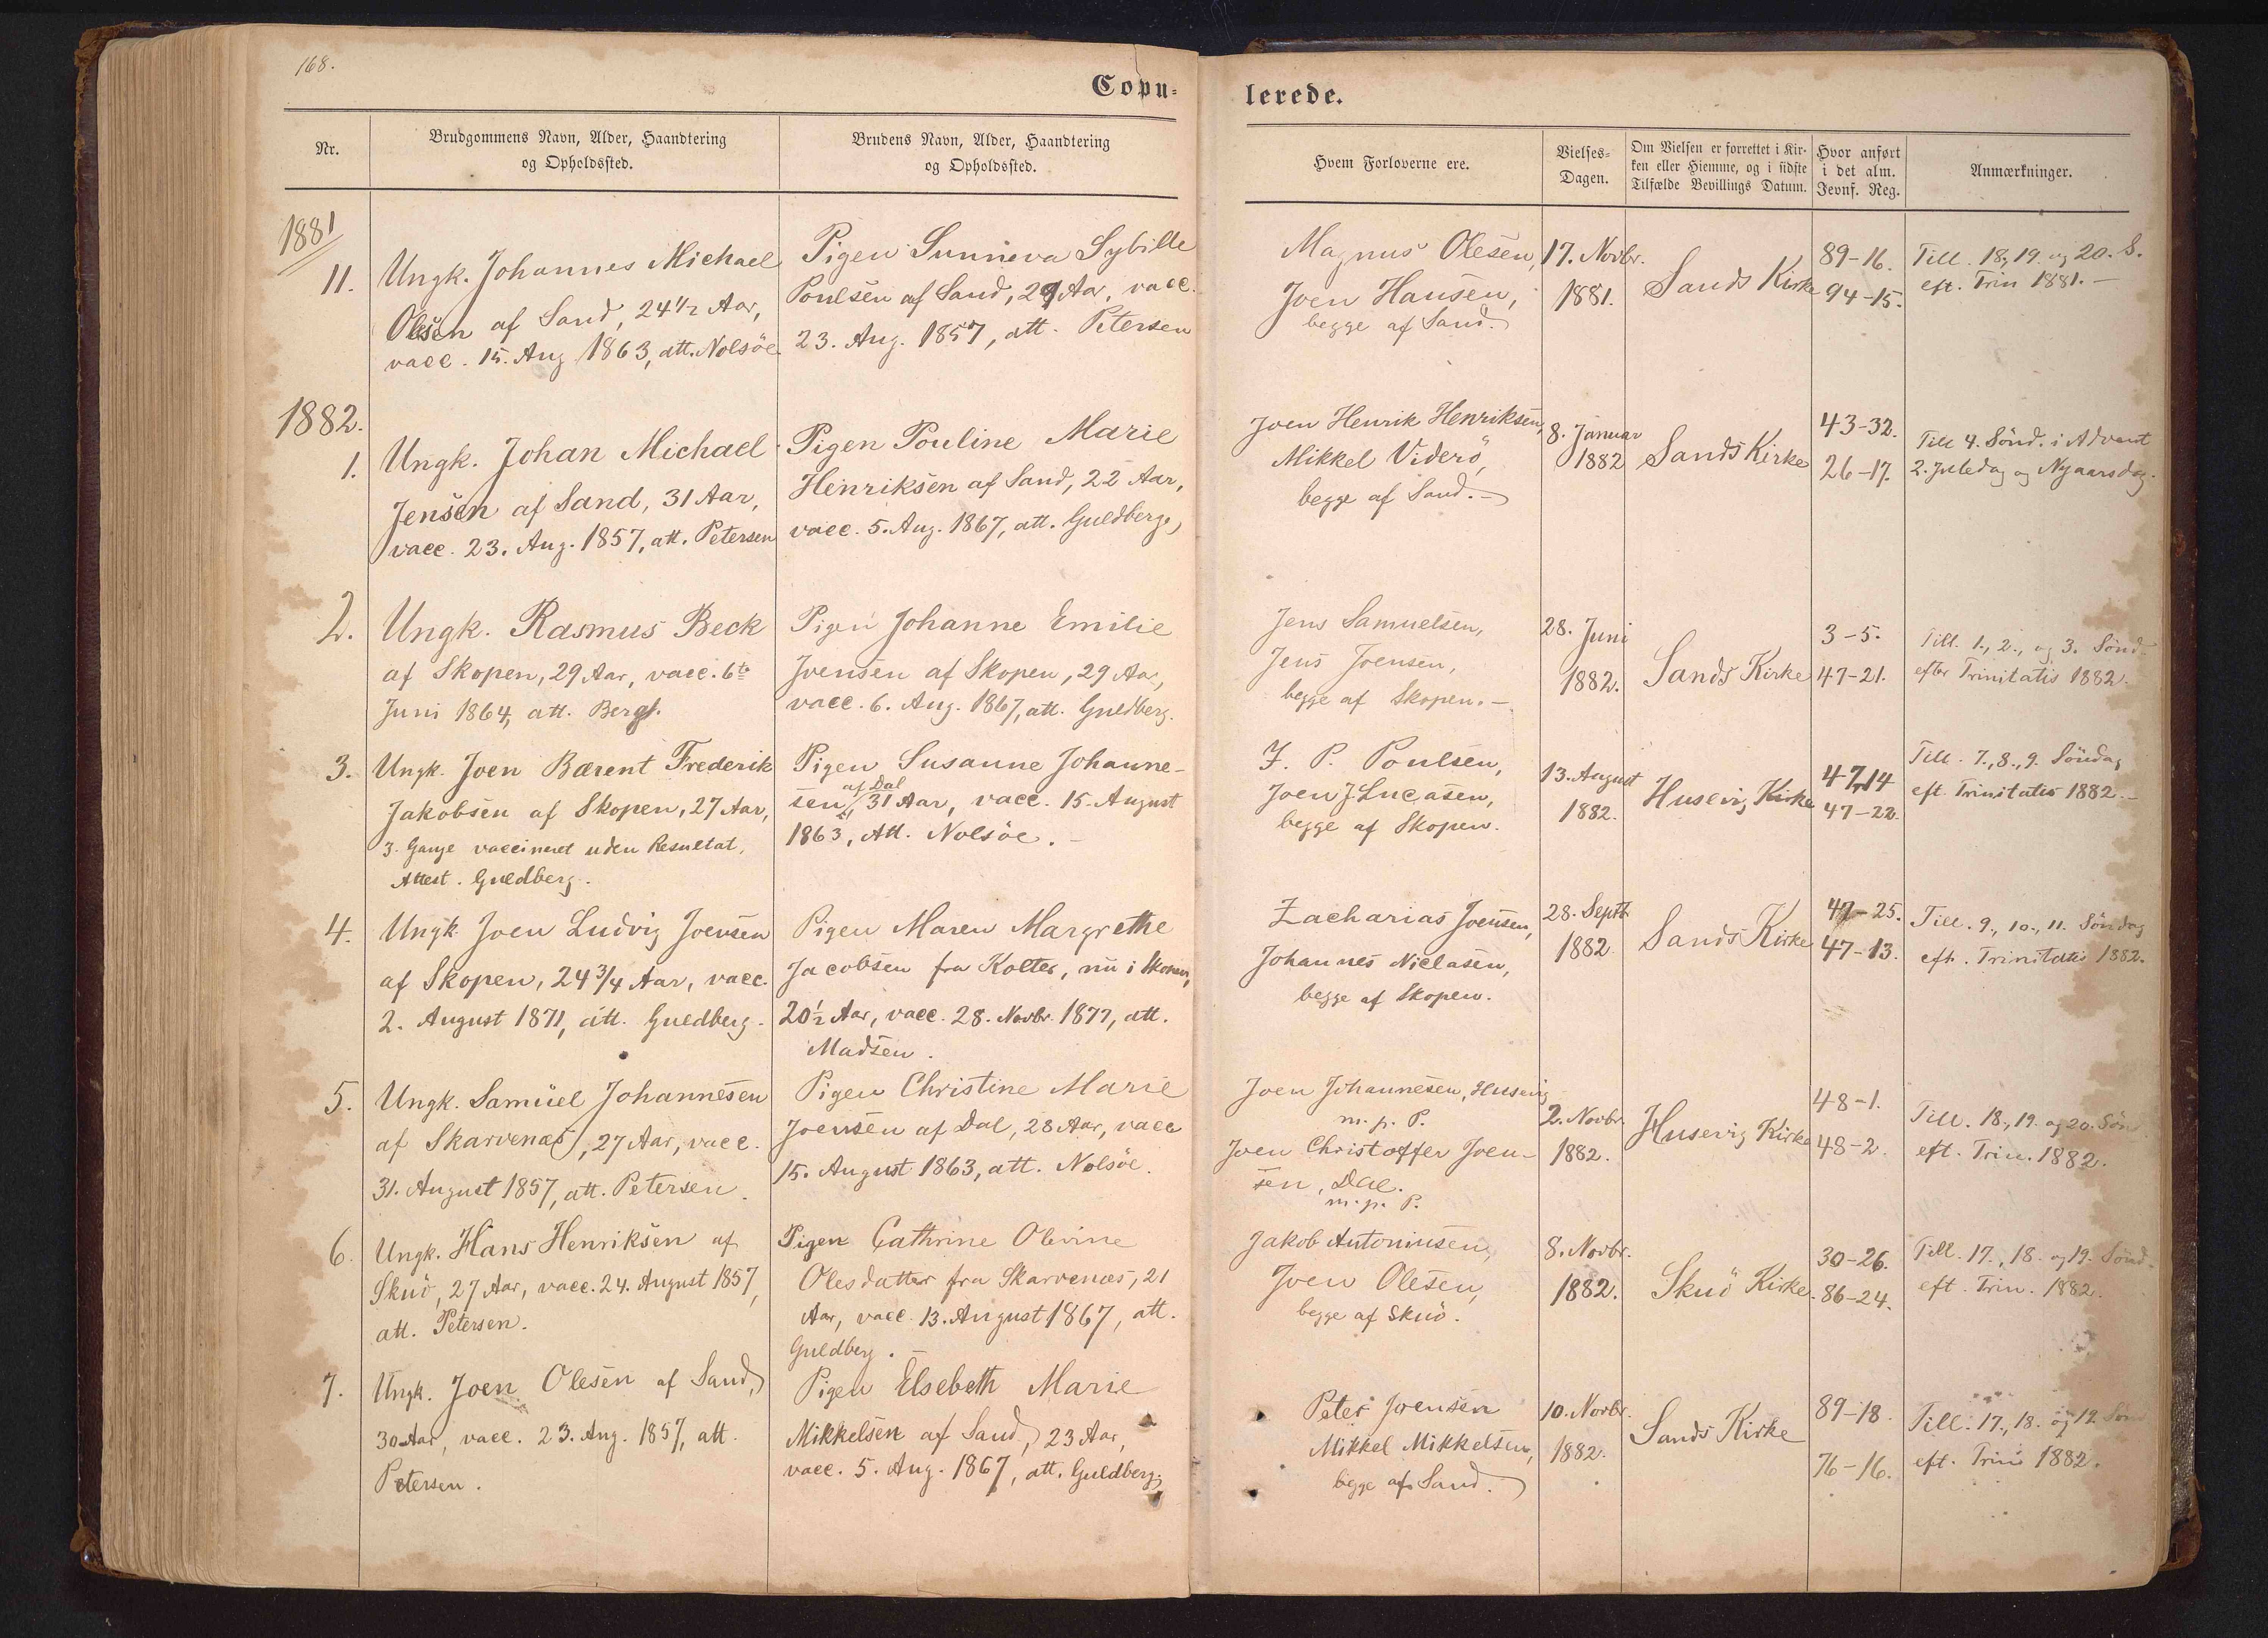 168.
Copu-
lerede.
Nr.
Brudgommens Navn, Alder, Haandtering
og Opholdssted.
Brudens Navn, Alder, Haandtering
og Opholdssted.
Hvem Forloverne ere.
Vielses-
Dagen.
Om Vielsen er forrettet i Kir-
ken eller Hjemme, og i sidste
Tilfælde Bevillings Datum.
Hvor anført
i det alm.
Jevnf. Reg.
Anmærkninger.
1881
11.
Ungk. Johannes Michael
Olesen af Sand, 24 1/2 Aar,
vacc. 15. Aug 1863, att. Nolsöe
Pigen Sunneva Sybille
Poulsen af Sand, 29 Aar, vacc.
23. Aug. 1857, att. Petersen
Magnus Olesen,
Joen Hansen,
begge af Sand.
17. Novbr.
1881.
Sands Kirke
89-16.
94-15.
Till. 18, 19. og 20. S.
eft. Trin 1881.-
1882.
1.
Ungk. Johan Michael
Jensen af Sand, 31 Aar,
vacc. 23. Aug. 1857, att. Petersen
Pigen Pouline Marie
Henriksen af Sand, 22 Aar,
vacc. 5. Aug. 1867, att. Guldberg.
Joen Henrik Henriksen,
Mikkel Viderö,
begge af Sand.-
8. Januar
1882
Sands Kirke
43-32.
26-17.
Till 4. Sönd. i Advent
2. Juledag og Nyaarsdag.
2.
Ungk. Rasmus Beck
af Skopen, 29 Aar, vacc. 6te
Juni 1864, att. Bergh.
Pigen Johanne Emilie
Joensen af Skopen, 29 Aar,
vacc. 6. Aug. 1867, att. Guldberg.
Jens Samuelsen,
Jens Joensen,
begge af Skopen.-
28. Juni
1882.
Sands Kirke
3-5.
47-21.
Till. 1., 2., og 3. Sönd-
efter Trinitatis 1882.
3.
Ungk. Joen Bærent Frederik
Jakobsen af Skopen, 27 Aar,
3. Gange vaccineret uden Resultat,
Attest. Guldberg.
Pigen Susanne Johanne-
sen, af Dal 31 Aar, vacc. 15. August
1863, Att. Nolsöe.-
J. P. Poulsen,
Joen J. Lucasen,
begge af Skopen.
13. August
1882.
Husevig Kirke
47-14
47-22.
Till. 7., 8., 9. Söndag
eft. Trinitatis 1882.-
4.
Ungk. Joen Ludvig Joensen
af Skopen, 24 3/4 Aar, vacc.
2. August 1871, att. Guldberg.
Pigen Maren Margrethe
Jacobsen fra Kolter, nu i Skopen,
20 1/2 Aar, vacc. 28. Novbr. 1877, att.
Madsen.
Zacharias Joensen,
Johannes Niclasen,
begge af Skopen.
28. Septb
1882
Sands Kirke
47-25.
47-13.
Till. 9., 10., 11. Söndag
eft. Trinitatis 1882.
5.
Ungk. Samüel Johannesen
af Skarvenæs, 27 Aar, vacc.
31. August 1857, att. Petersen.
Pigen Christine Marie
Joensen af Dal, 28 Aar, vacc
15. August 1863, att. Nolsöe.
Joen Johannesen, Husevig
m. p. P.
Joen Christoffer Joen-
sen, Dal.
m. p. P.
2. Novbr.
1882.
Husevig Kirke
48-1.
48-2.
Till. 18., 19. og 20. Sön
eft. Trin. 1882.
6.
Ungk. Hans Henriksen af
Skuö, 27 Aar, vacc. 24. August 1857,
att. Petersen.
Pigen Cathrine Olevine
Olesdatter fra Skarvenæs, 21
Aar, vacc. 13. August 1867, att.
Guldberg.
Jakob Antoniusen,
Joen Olesen,
begge af Skuö.
8. Novbr.
1882.
Skuö Kirke.
30-26.
86-24.
Till. 17., 18. og 19. Sönd-
eft. Trin. 1882.
7.
Ungk. Joen Olesen af Sand,
30 Aar, vacc. 23. Aug. 1857, att.
Petersen.
Pigen Elsebeth Marie
Mikkelsen af Sand, 23 Aar,
vacc. 5. Aug. 1867, att. Guldberg.
Peter Joensen
Mikkel Mikkelsen,
begge af Sand.
10. Novbr.
1882.
Sands Kirke
89-18.
76-16.
Till. 17., 18. og 19. Sön
eft. Trin 1882.